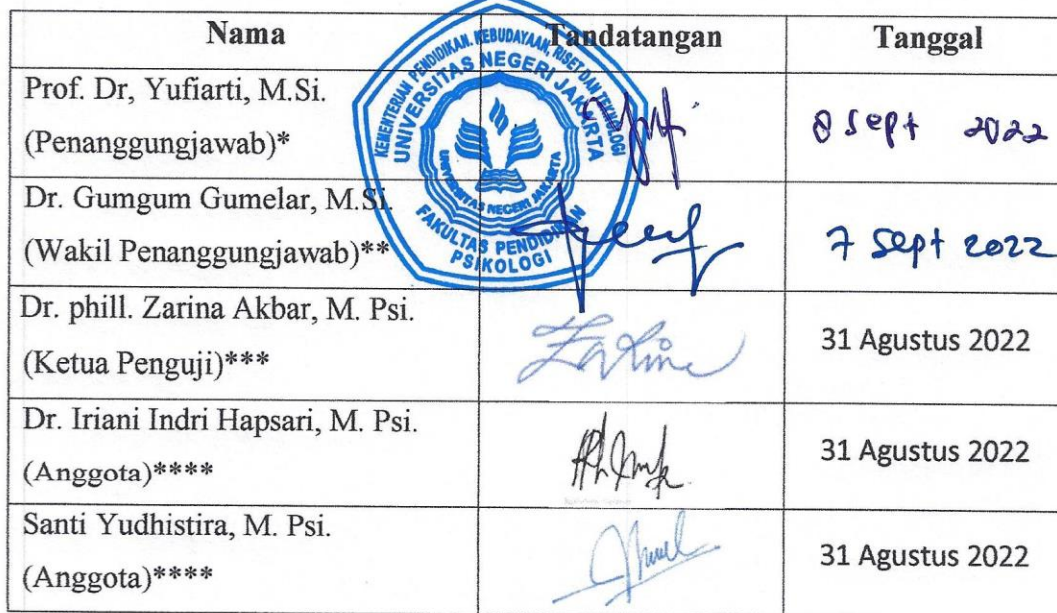 Nama Tandatangan Tanggal
Prof. Dr, Yufiarti, M.Si.
(Penanggungjawab)*
8 Sept 2022
Dr. Gumgum Gumelar, M.Si.
(Wakil Penanggungjawab)**
7 Sept 2022
Dr. phill. Zarina Akbar, M. Psi.
(Ketua Penguji)***
31 Agustus 2022
Dr. Iriani Indri Hapsari, M. Psi.
(Anggota)****
31 Agustus 2022
Santi Yudhistira, M. Psi.
(Anggota)****
31 Agustus 2022
KEMENTERIAN PENDIDIKAN. KEBUDAYAAN, RISET DAN TEKNOLOGI
UNIVERSITAS NEGERI JAKARTA
UNIVERSITAS NEGERI JAKARTA
FAKULTAS PENDIDIKAN
PSIKOLOGI